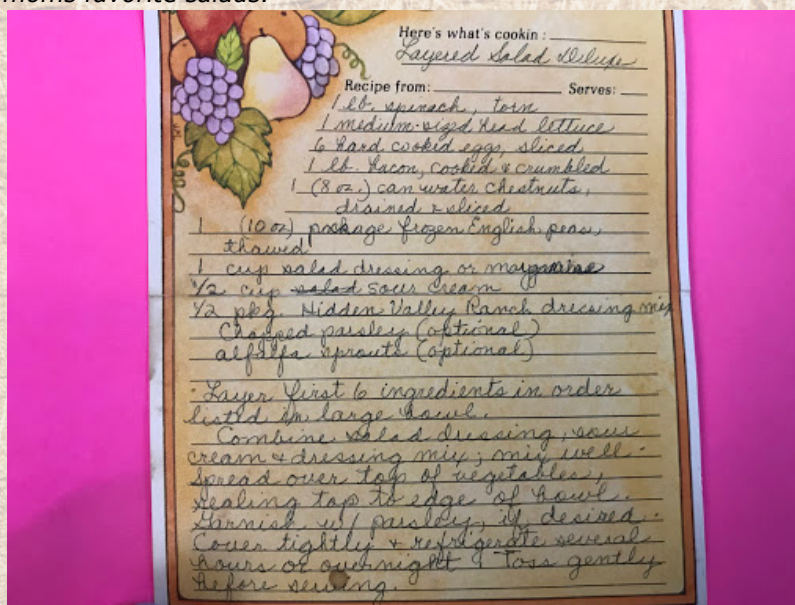 moms favorite salads.
Here's what's cookin :
Layered Salad Deluxe
Recipe from: Serves:
1 lb. spinach, torn
1 medium-sized head lettuce
6 hard cooked eggs, sliced
1 lb. bacon, cooked & crumbled
1 (8 oz.) can water chestnuts,
drained & sliced
1 (10 oz) package frozen English peas,
thawed
1 cup salad dressing or
1/2 cup salad sour cream
1/2 pkg. Hidden Valley Ranch dressing mix
Chopped parsley (optional)
alfalfa sprouts (optional)
Layer first 6 ingredients in order
listed in large bowl.
Combine salad dressing, sour
cream & dressing mix; mix well.
Spread over top of vegetables,
sealing top to edge of bowl.
Garnish w/ parsley, if desired.
Cover tightly & refrigerate several
hours or overnight. Toss gently
before serving.